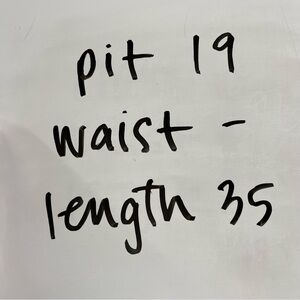 pit 19
waist -
length 35